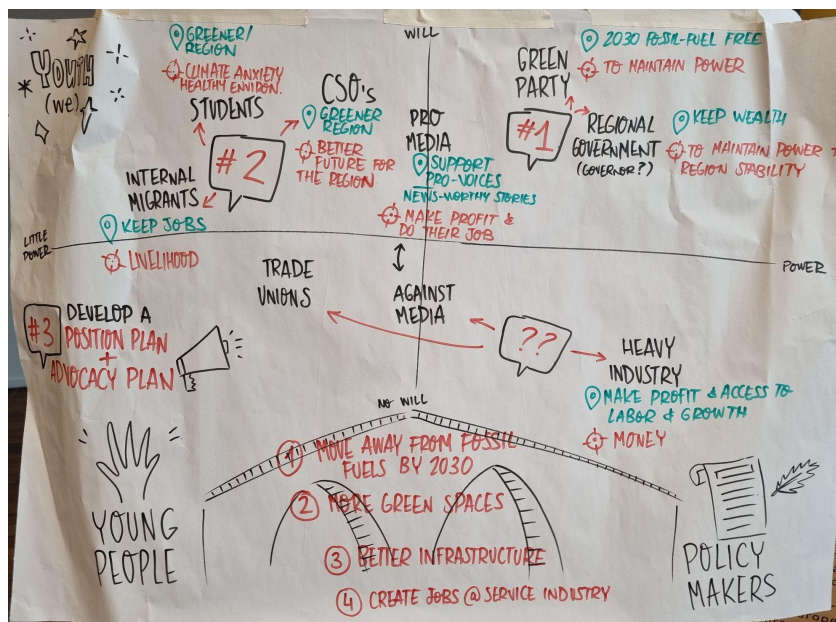 Youth
(we)
GREENER/
REGION
CLIMATE ANXIETY
HEALTHY ENVIRON.
STUDENTS
CSO's
GREENER
REGION
BETTER
FUTURE FOR
THE REGION
#2
INTERNAL
MIGRANTS
KEEP JOBS
LIVELIHOOD
LITTLE
POWER
WILL
PRO
MEDIA
SUPPORT
PRO-VOICES
NEWS-WORTHY STORIES
MAKE PROFIT &
DO THEIR JOB
GREEN
PARTY
2030 FOSSIL-FUEL FREE
TO MAINTAIN POWER
#1
REGIONAL
GOVERNMENT
(GOVERNOR?)
KEEP WEALTH
TO MAINTAIN POWER &
REGION STABILITY
POWER
TRADE
UNIONS
AGAINST
MEDIA
??
HEAVY
INDUSTRY
MAKE PROFIT & ACCESS TO
LABOR & GROWTH
MONEY
#3
DEVELOP A
POSITION PLAN
+
ADVOCACY PLAN
NO WILL
1 MOVE AWAY FROM FOSSIL
FUELS BY 2030
2 MORE GREEN SPACES
3 BETTER INFRASTRUCTURE
4 CREATE JOBS @ SERVICE INDUSTRY
YOUNG
PEOPLE
POLICY
MAKERS